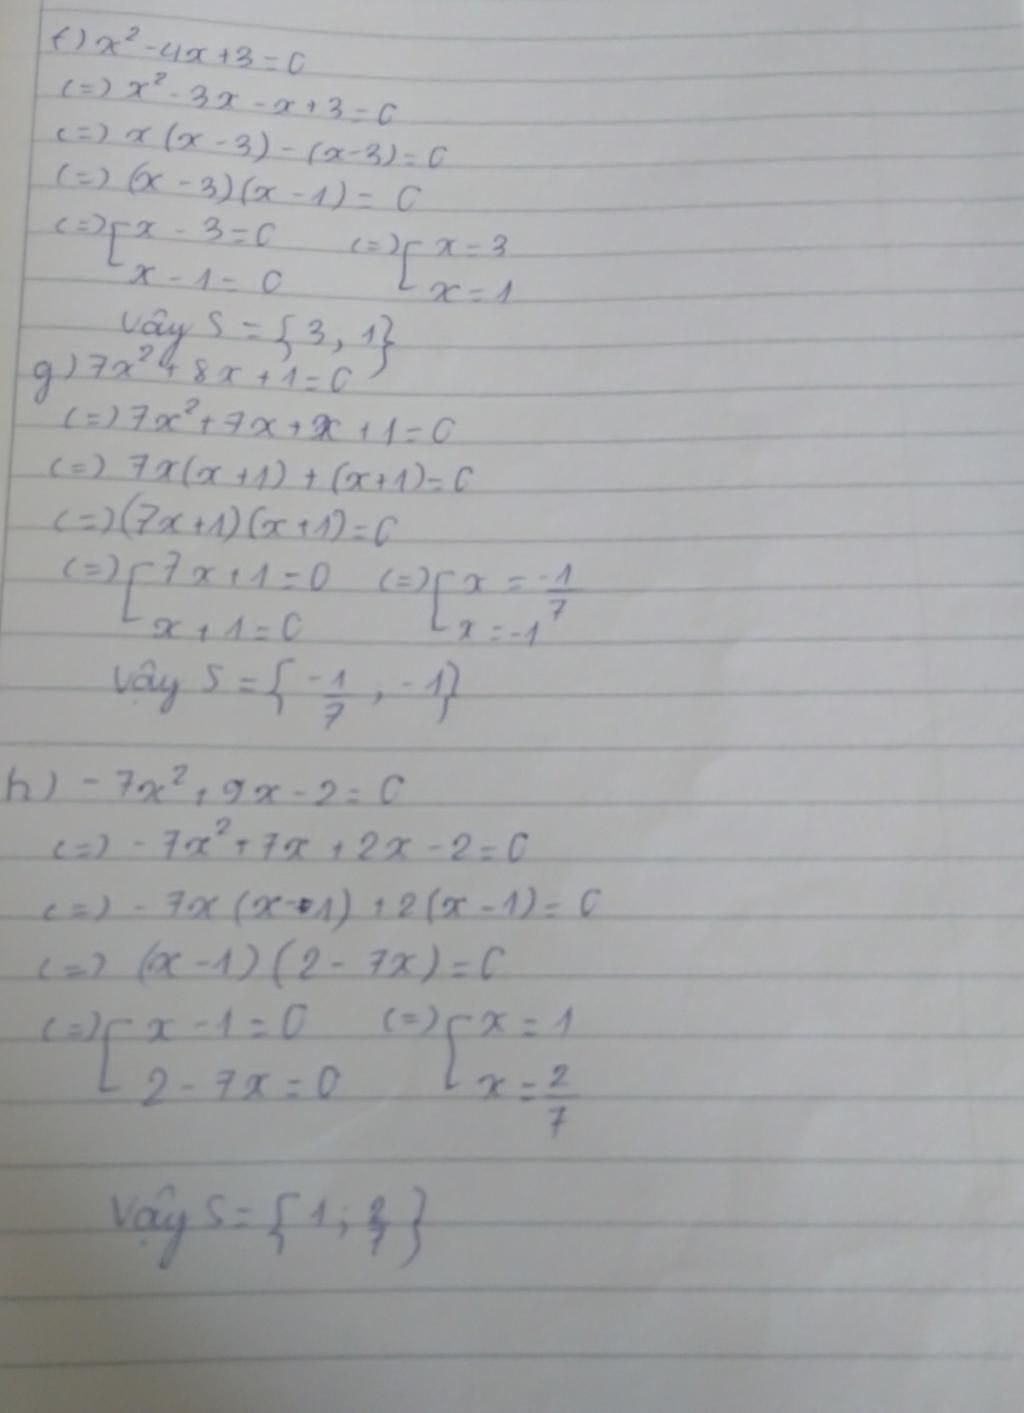 f) x² - 4x + 3 = 0
(=) x² - 3x - x + 3 = 0
(=) x(x - 3) - (x - 3) = 0
(=) (x - 3)(x - 1) = 0
(=) [ x - 3 = 0 (=) [ x = 3
x - 1 = 0 x = 1
Vậy S = {3, 1}
g) 7x² + 8x + 1 = 0
(=) 7x² + 7x + x + 1 = 0
(=) 7x(x + 1) + (x + 1) = 0
(=) (7x + 1)(x + 1) = 0
(=) [ 7x + 1 = 0 (=) [ x = -1/7
x + 1 = 0 x = -1
Vậy S = {-1/7, -1}
h) - 7x² + 9x - 2 = 0
(=) - 7x² + 7x + 2x - 2 = 0
(=) - 7x(x - 1) + 2(x - 1) = 0
(=) (x - 1)(2 - 7x) = 0
(=) [ x - 1 = 0 (=) [ x = 1
2 - 7x = 0 x = 2/7
Vậy S = {1; 2/7}